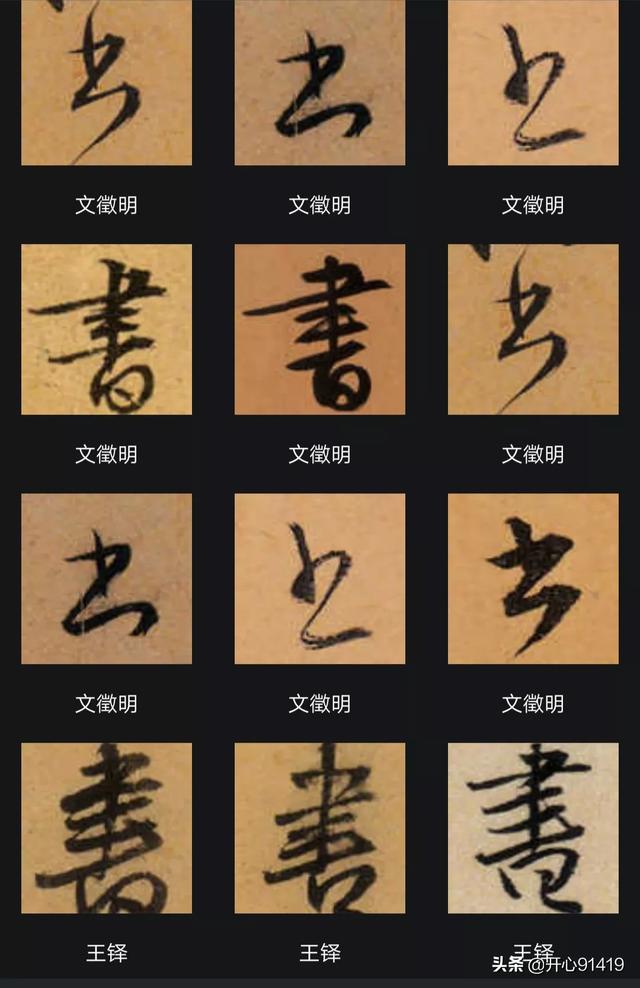 书 书 书
文徵明 文徵明 文徵明
書 書 书
文徵明 文徵明 文徵明
书 书 书
文徵明 文徵明 文徵明
書 書 書
王铎 王铎 王铎
头条 @开心91419